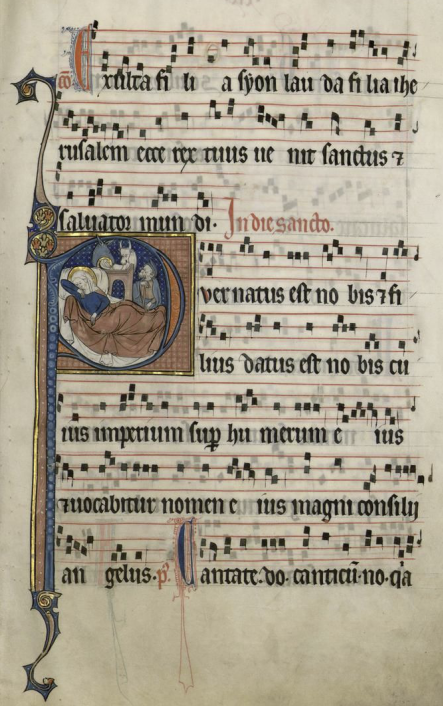 cō Exulta fi li a syon lau da fi lia ihe
rusalem ecce rex tuus ue nit sanctus ⁊
saluator mun di. In die sancto.
Puer natus est no bis ⁊ fi
lius datus est no bis cu
ius imperium sup hu merum e ius
⁊ uocabitur nomen e ius magni consilij
an gelus. p̄. Cantate. do. canticū. no. q̄a